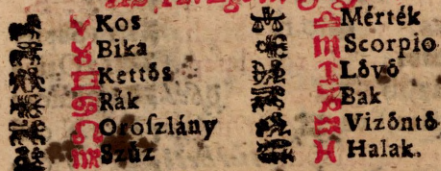 ♈ Kos
♉ Bika
♊ Kettős
♋ Rák
♌ Oroſzlány
♍ Szűz
♎ Mérték
♏ Scorpio
♐ Lővő
♑ Bak
♒ Vizöntő
♓ Halak.